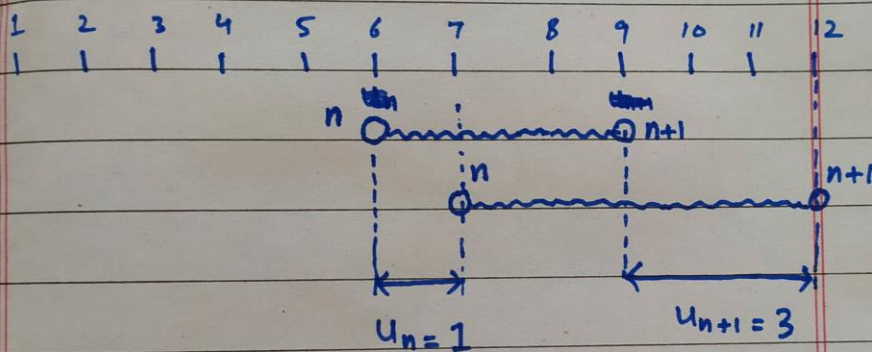 1 2 3 4 5 6 7 8 9 10 11 12
n n+1
n n+1
u_n = 1 u_{n+1} = 3